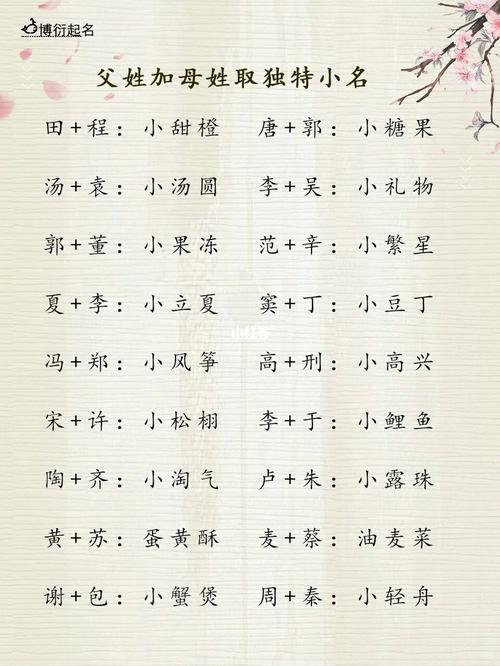 博衍起名
父姓加母姓取独特小名
田+程：小甜橙 唐+郭：小糖果
汤+袁：小汤圆 李+吴：小礼物
郭+董：小果冻 范+辛：小繁星
夏+李：小立夏 窦+丁：小豆丁
小红书
冯+郑：小风筝 高+刑：小高兴
宋+许：小松栩 李+于：小鲤鱼
陶+齐：小淘气 卢+朱：小露珠
黄+苏：蛋黄酥 麦+蔡：油麦菜
谢+包：小蟹煲 周+秦：小轻舟